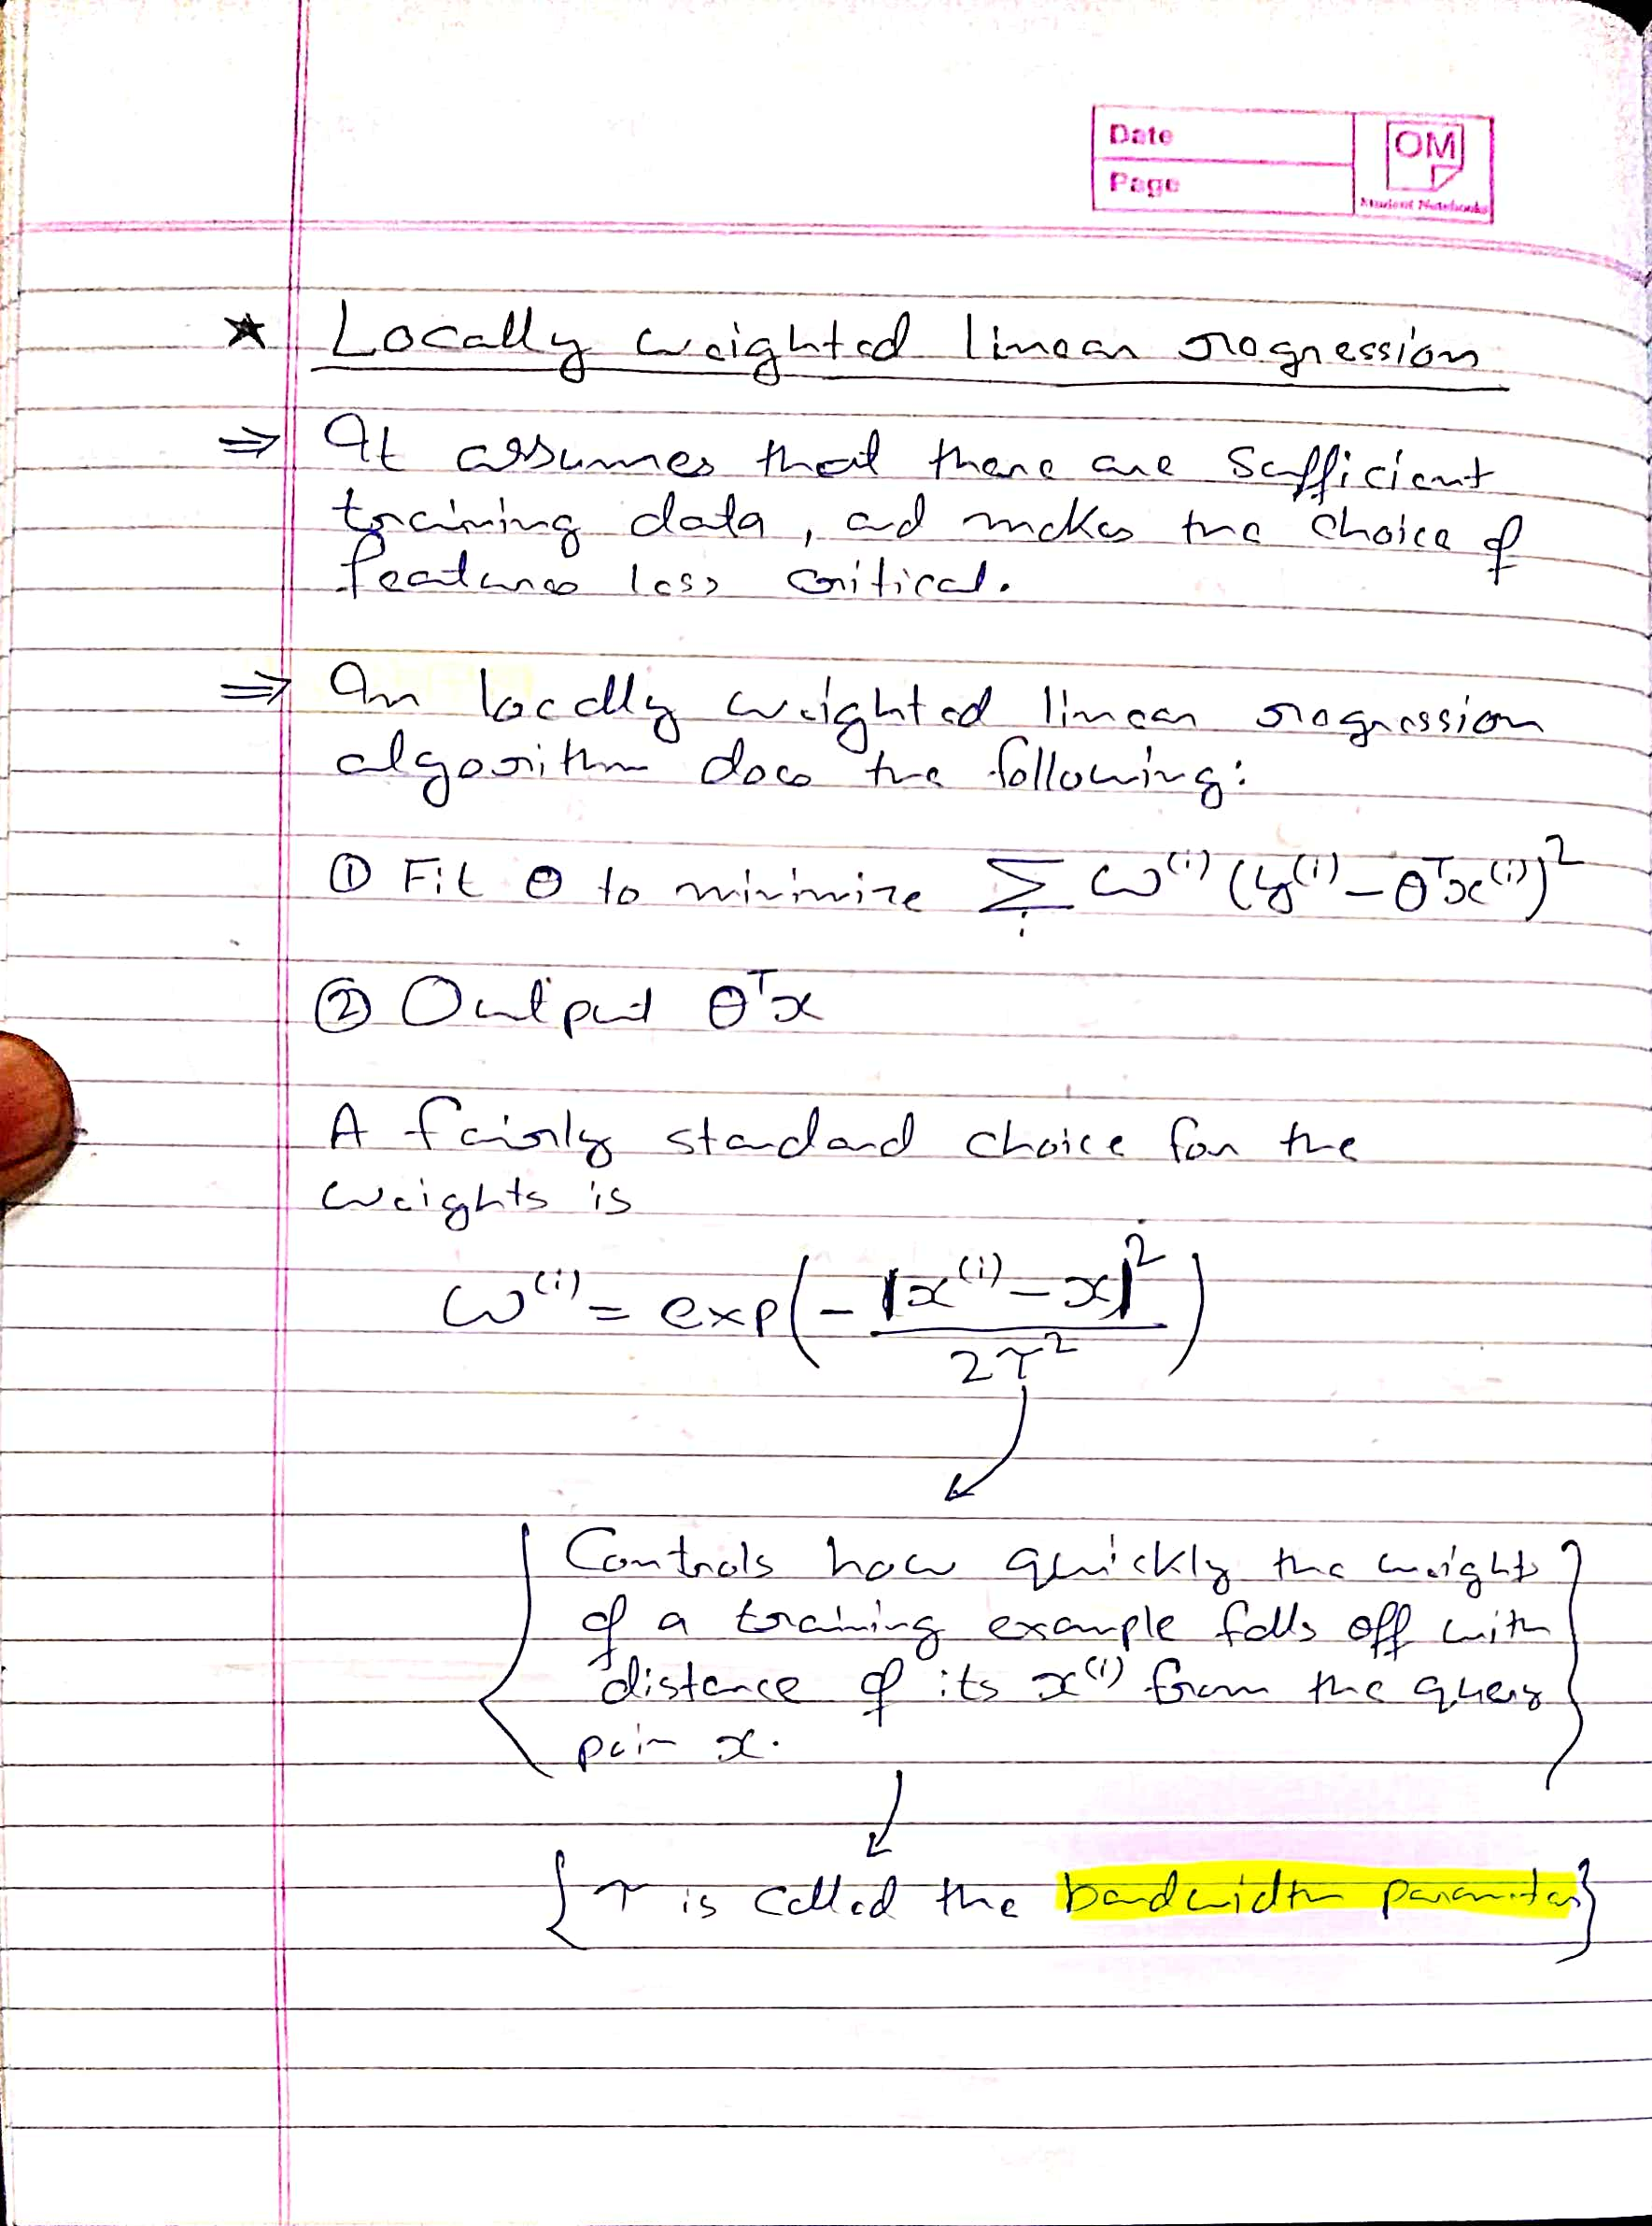 Date
Page
OM
Student Notebooks
★ Locally weighted linear regression
⇒ It assumes that there are sufficient
training data, ad makes the choice of
features less critical.
⇒ In locally weighted linear regression
algorithm does the following:
① Fit θ to minimize Σᵢ ω⁽ⁱ⁾ (y⁽ⁱ⁾ − θᵀx⁽ⁱ⁾)²
② Output θᵀx
A fairly standard choice for the
weights is
ω⁽ⁱ⁾ = exp(− |x⁽ⁱ⁾ − x|² / 2τ²)
Controls how quickly the weights
of a training example falls off with
distance of its x⁽ⁱ⁾ from the query
poin x.
{τ is called the bandwidth parameter}